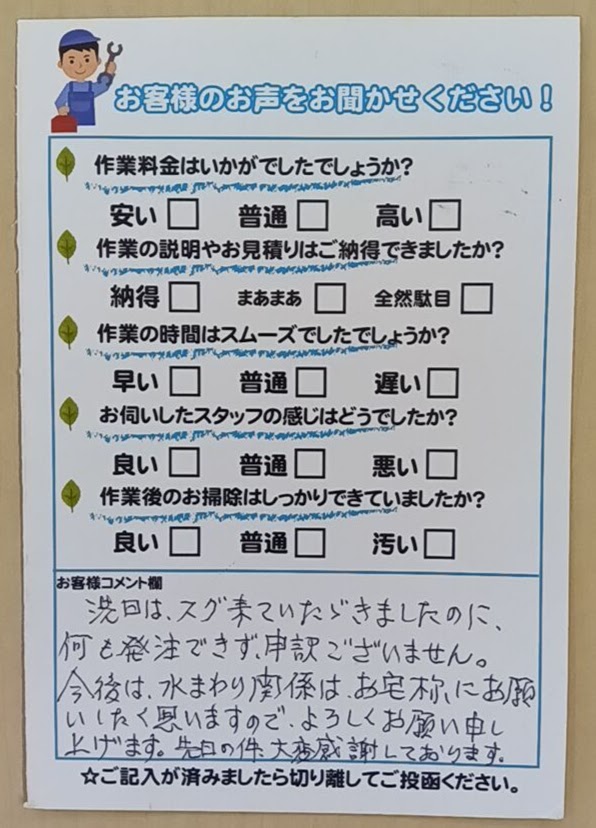 お客様のお声をお聞かせください！
作業料金はいかがでしたでしょうか？
安い □ 普通 □ 高い □
作業の説明やお見積りはご納得できましたか？
納得 □ まあまあ □ 全然駄目 □
作業の時間はスムーズでしたでしょうか？
早い □ 普通 □ 遅い □
お伺いしたスタッフの感じはどうでしたか？
良い □ 普通 □ 悪い □
作業後のお掃除はしっかりできていましたか？
良い □ 普通 □ 汚い □
お客様コメント欄
洗日は、スグ来ていただきましたのに、
何も発注できず、申訳ございません。
今後は、水まわり関係は、お宅称、にお願
いしたく思いますので、よろしくお願い申し
上げます。先日の件、大変感謝しております。
☆ご記入が済みましたら切り離してご投函ください。